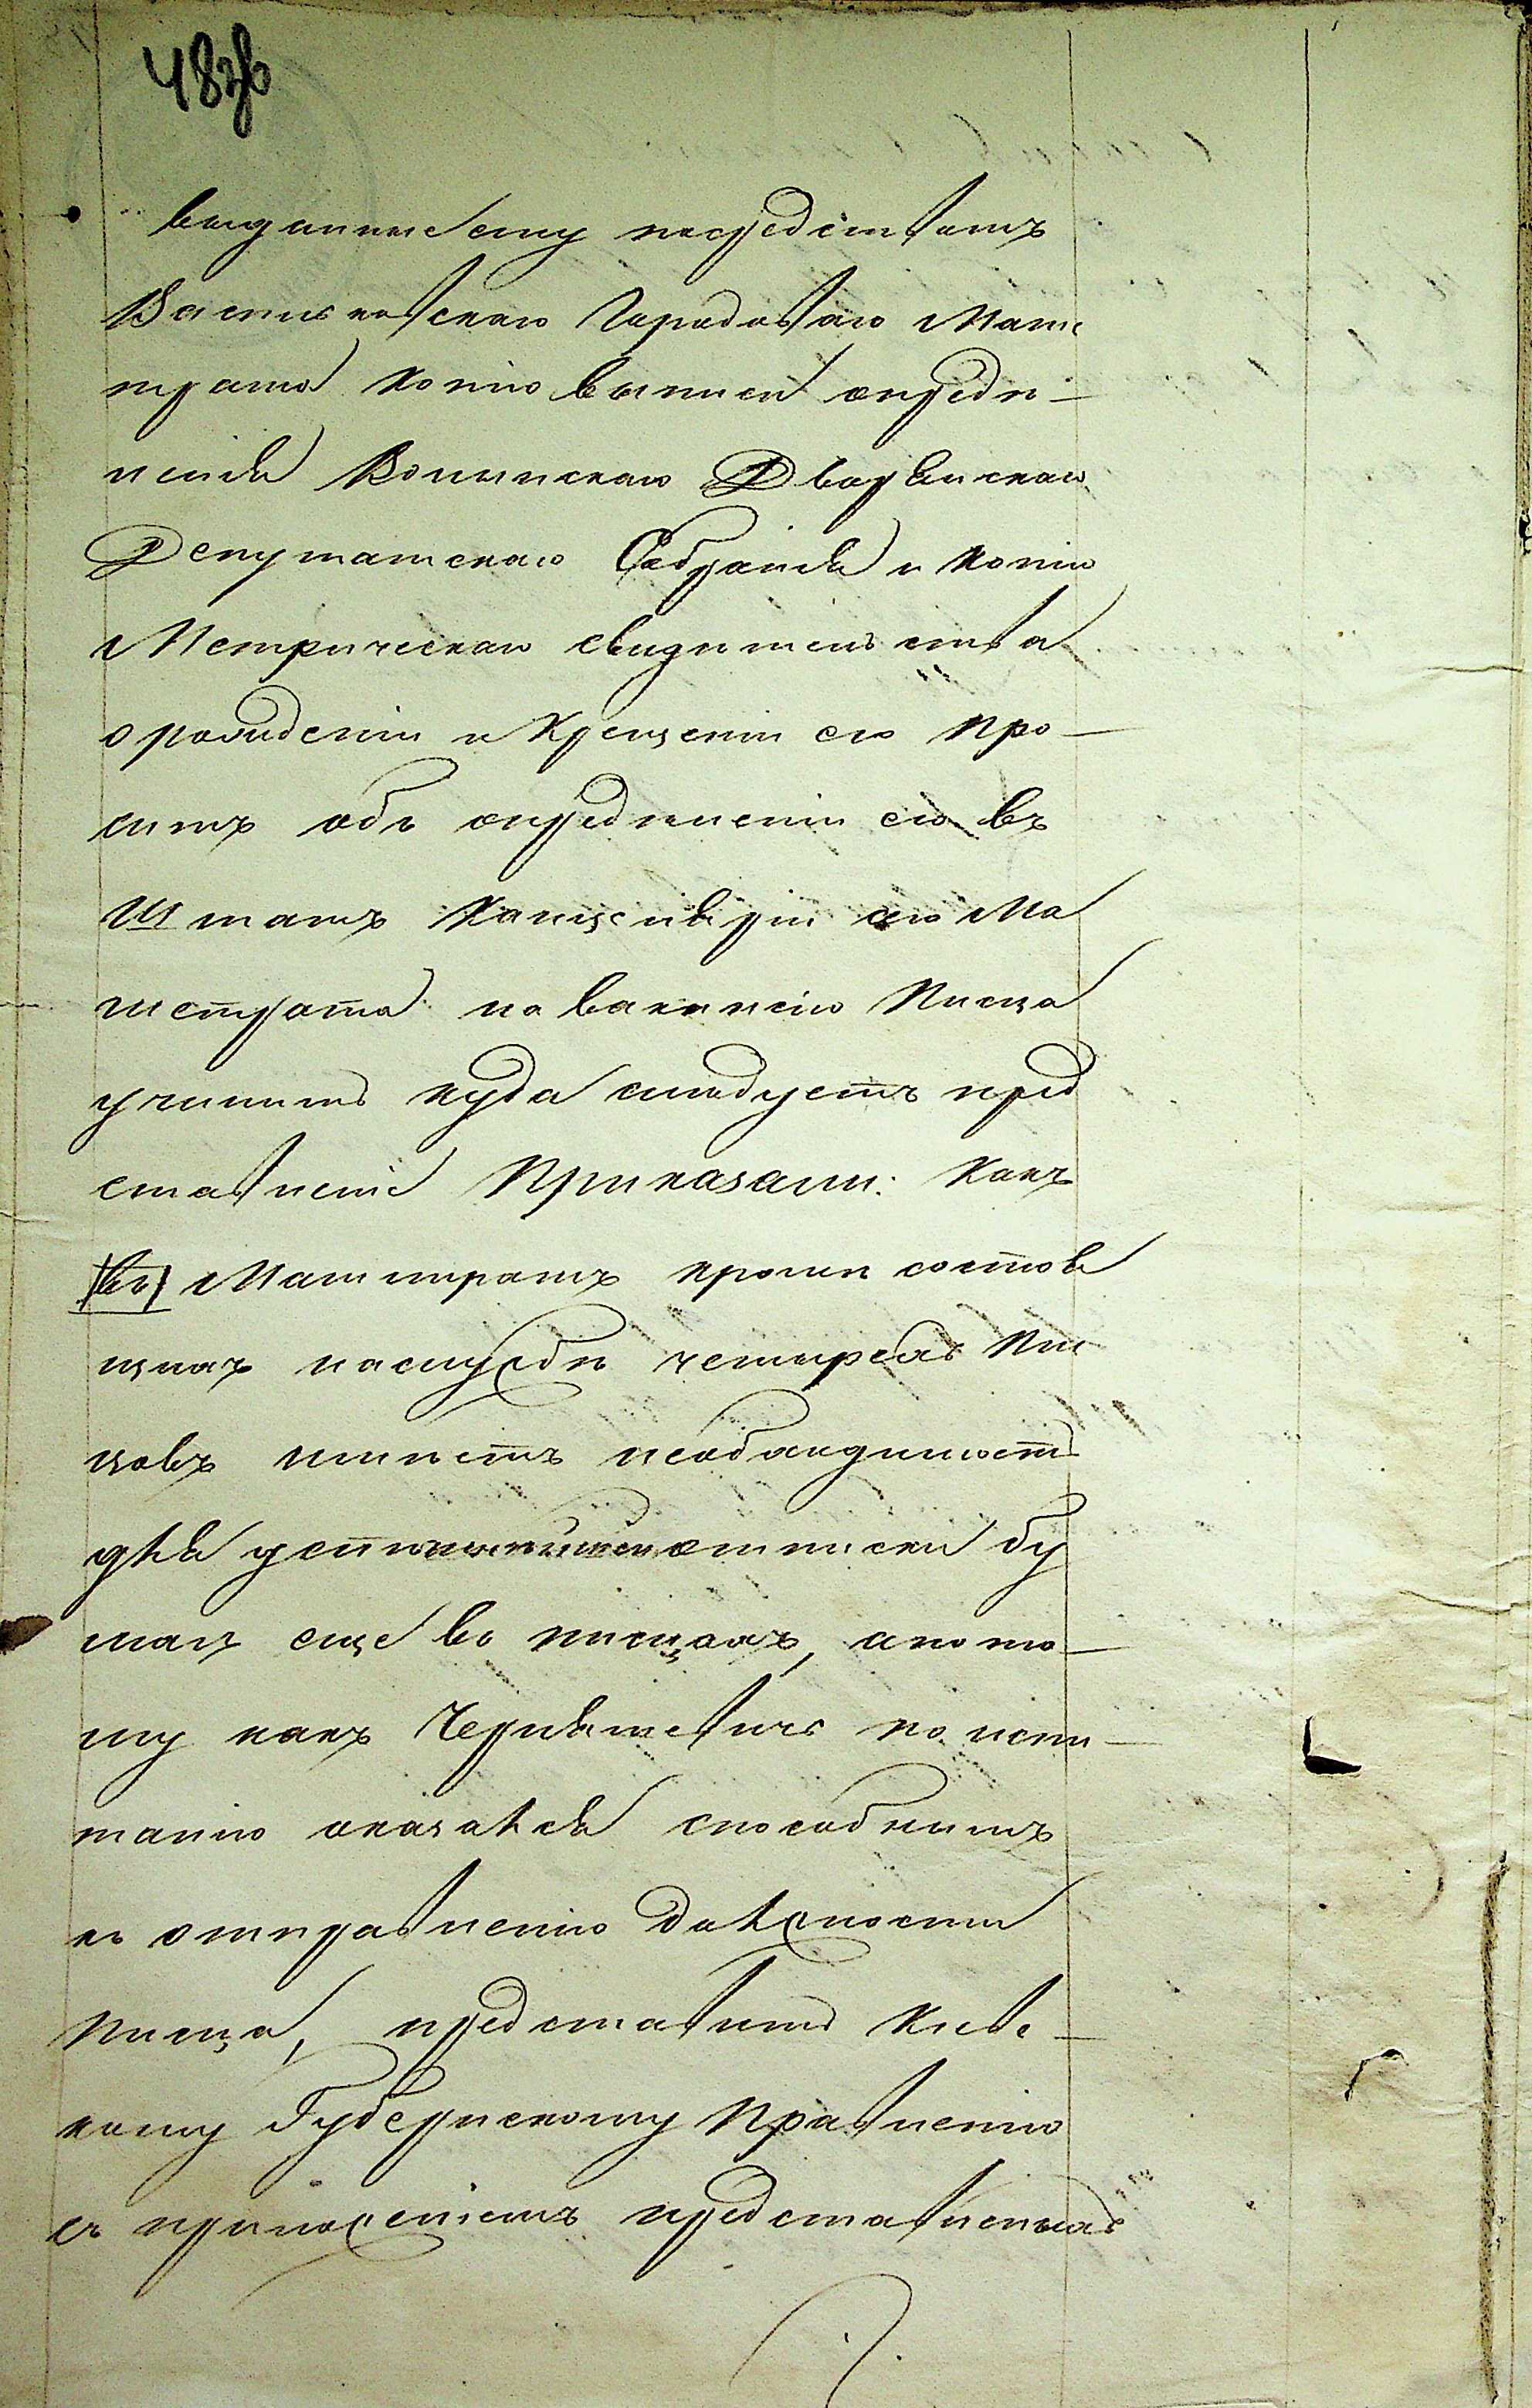 483б
выданные ему посредствомъ
Васильковскаго Городоваго Маги
трата копію выписи опреде–
ленія Волынскаго Дворянскаго
Депутатскаго Собранія и копію
Метрическаго свидетельства
о рождении и крещеніи его про–
ситъ объ определеніи его въ
Штатъ Канцеляріи сего Ма
гистрата на вакансію Писца
учинить куда следуетъ пред
ставленіе Приказали: Какъ
въ Магистратъ кроме состоя
щихъ на службе четырехъ Пи
цовъ имеетъ необходимость
для успешной отписки бу
магъ еще въ писцахъ, а пото–
му какъ Чернятевичъ по испы–
танію оказался способнымъ
къ отправленію должности
Писца, представить Киевс–
кому Губернскому Правленію
съ приложеніемъ представленныхъ